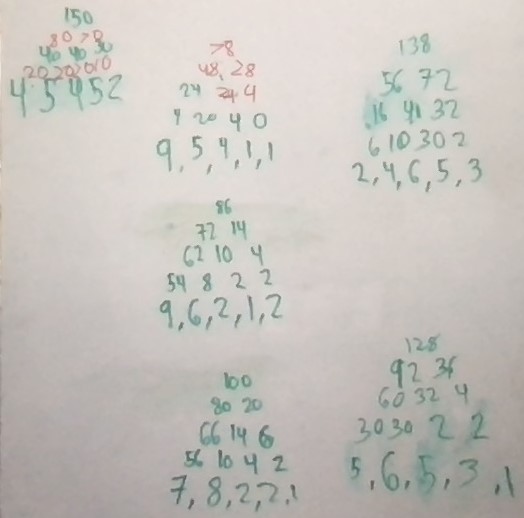 150
80 70
40 40 30
20 20 20 10
4 5 4 5 2
78
48, 28
24 24 4
4 20 4 0
9, 5, 4, 1, 1
138
56 72
16 41 32
6 10 30 2
2, 4, 6, 5, 3
86
72 14
62 10 4
54 8 2 2
9, 6, 2, 1, 2
100
80 20
66 14 6
56 10 4 2
7, 8, 2, 2, 1
128
92 36
60 32 4
30 30 2 2
5, 6, 5, 3, 1